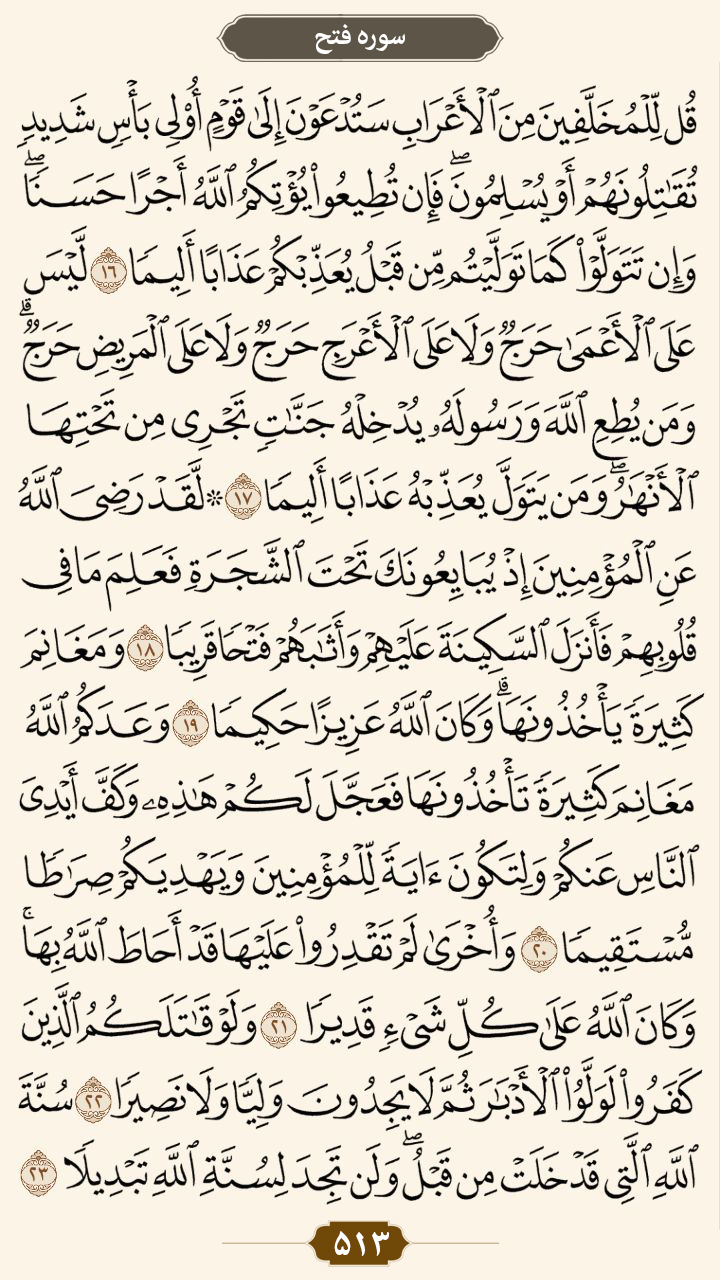 سوره فتح
قُل لِّلْمُخَلَّفِينَ مِنَ ٱلْأَعْرَابِ سَتُدْعَوْنَ إِلَىٰ قَوْمٍ أُو۟لِى بَأْسٍ شَدِيدٍ
تُقَٰتِلُونَهُمْ أَوْ يُسْلِمُونَ ۖ فَإِن تُطِيعُوا۟ يُؤْتِكُمُ ٱللَّهُ أَجْرًا حَسَنًا ۖ
وَإِن تَتَوَلَّوْا۟ كَمَا تَوَلَّيْتُم مِّن قَبْلُ يُعَذِّبْكُمْ عَذَابًا أَلِيمًا ١٦ لَّيْسَ
عَلَى ٱلْأَعْمَىٰ حَرَجٌ وَلَا عَلَى ٱلْأَعْرَجِ حَرَجٌ وَلَا عَلَى ٱلْمَرِيضِ حَرَجٌ ۗ
وَمَن يُطِعِ ٱللَّهَ وَرَسُولَهُۥ يُدْخِلْهُ جَنَّٰتٍ تَجْرِى مِن تَحْتِهَا
ٱلْأَنْهَٰرُ ۖ وَمَن يَتَوَلَّ يُعَذِّبْهُ عَذَابًا أَلِيمًا ١٧ ۞ لَّقَدْ رَضِىَ ٱللَّهُ
عَنِ ٱلْمُؤْمِنِينَ إِذْ يُبَايِعُونَكَ تَحْتَ ٱلشَّجَرَةِ فَعَلِمَ مَا فِى
قُلُوبِهِمْ فَأَنزَلَ ٱلسَّكِينَةَ عَلَيْهِمْ وَأَثَٰبَهُمْ فَتْحًا قَرِيبًا ١٨ وَمَغَانِمَ
كَثِيرَةً يَأْخُذُونَهَا ۗ وَكَانَ ٱللَّهُ عَزِيزًا حَكِيمًا ١٩ وَعَدَكُمُ ٱللَّهُ
مَغَانِمَ كَثِيرَةً تَأْخُذُونَهَا فَعَجَّلَ لَكُمْ هَٰذِهِۦ وَكَفَّ أَيْدِىَ
ٱلنَّاسِ عَنكُمْ وَلِتَكُونَ ءَايَةً لِّلْمُؤْمِنِينَ وَيَهْدِيَكُمْ صِرَٰطًا
مُّسْتَقِيمًا ٢٠ وَأُخْرَىٰ لَمْ تَقْدِرُوا۟ عَلَيْهَا قَدْ أَحَاطَ ٱللَّهُ بِهَا ۚ
وَكَانَ ٱللَّهُ عَلَىٰ كُلِّ شَىْءٍ قَدِيرًا ٢١ وَلَوْ قَٰتَلَكُمُ ٱلَّذِينَ
كَفَرُوا۟ لَوَلَّوُا۟ ٱلْأَدْبَٰرَ ثُمَّ لَا يَجِدُونَ وَلِيًّا وَلَا نَصِيرًا ٢٢ سُنَّةَ
ٱللَّهِ ٱلَّتِى قَدْ خَلَتْ مِن قَبْلُ ۖ وَلَن تَجِدَ لِسُنَّةِ ٱللَّهِ تَبْدِيلًا ٢٣
۵۱۳